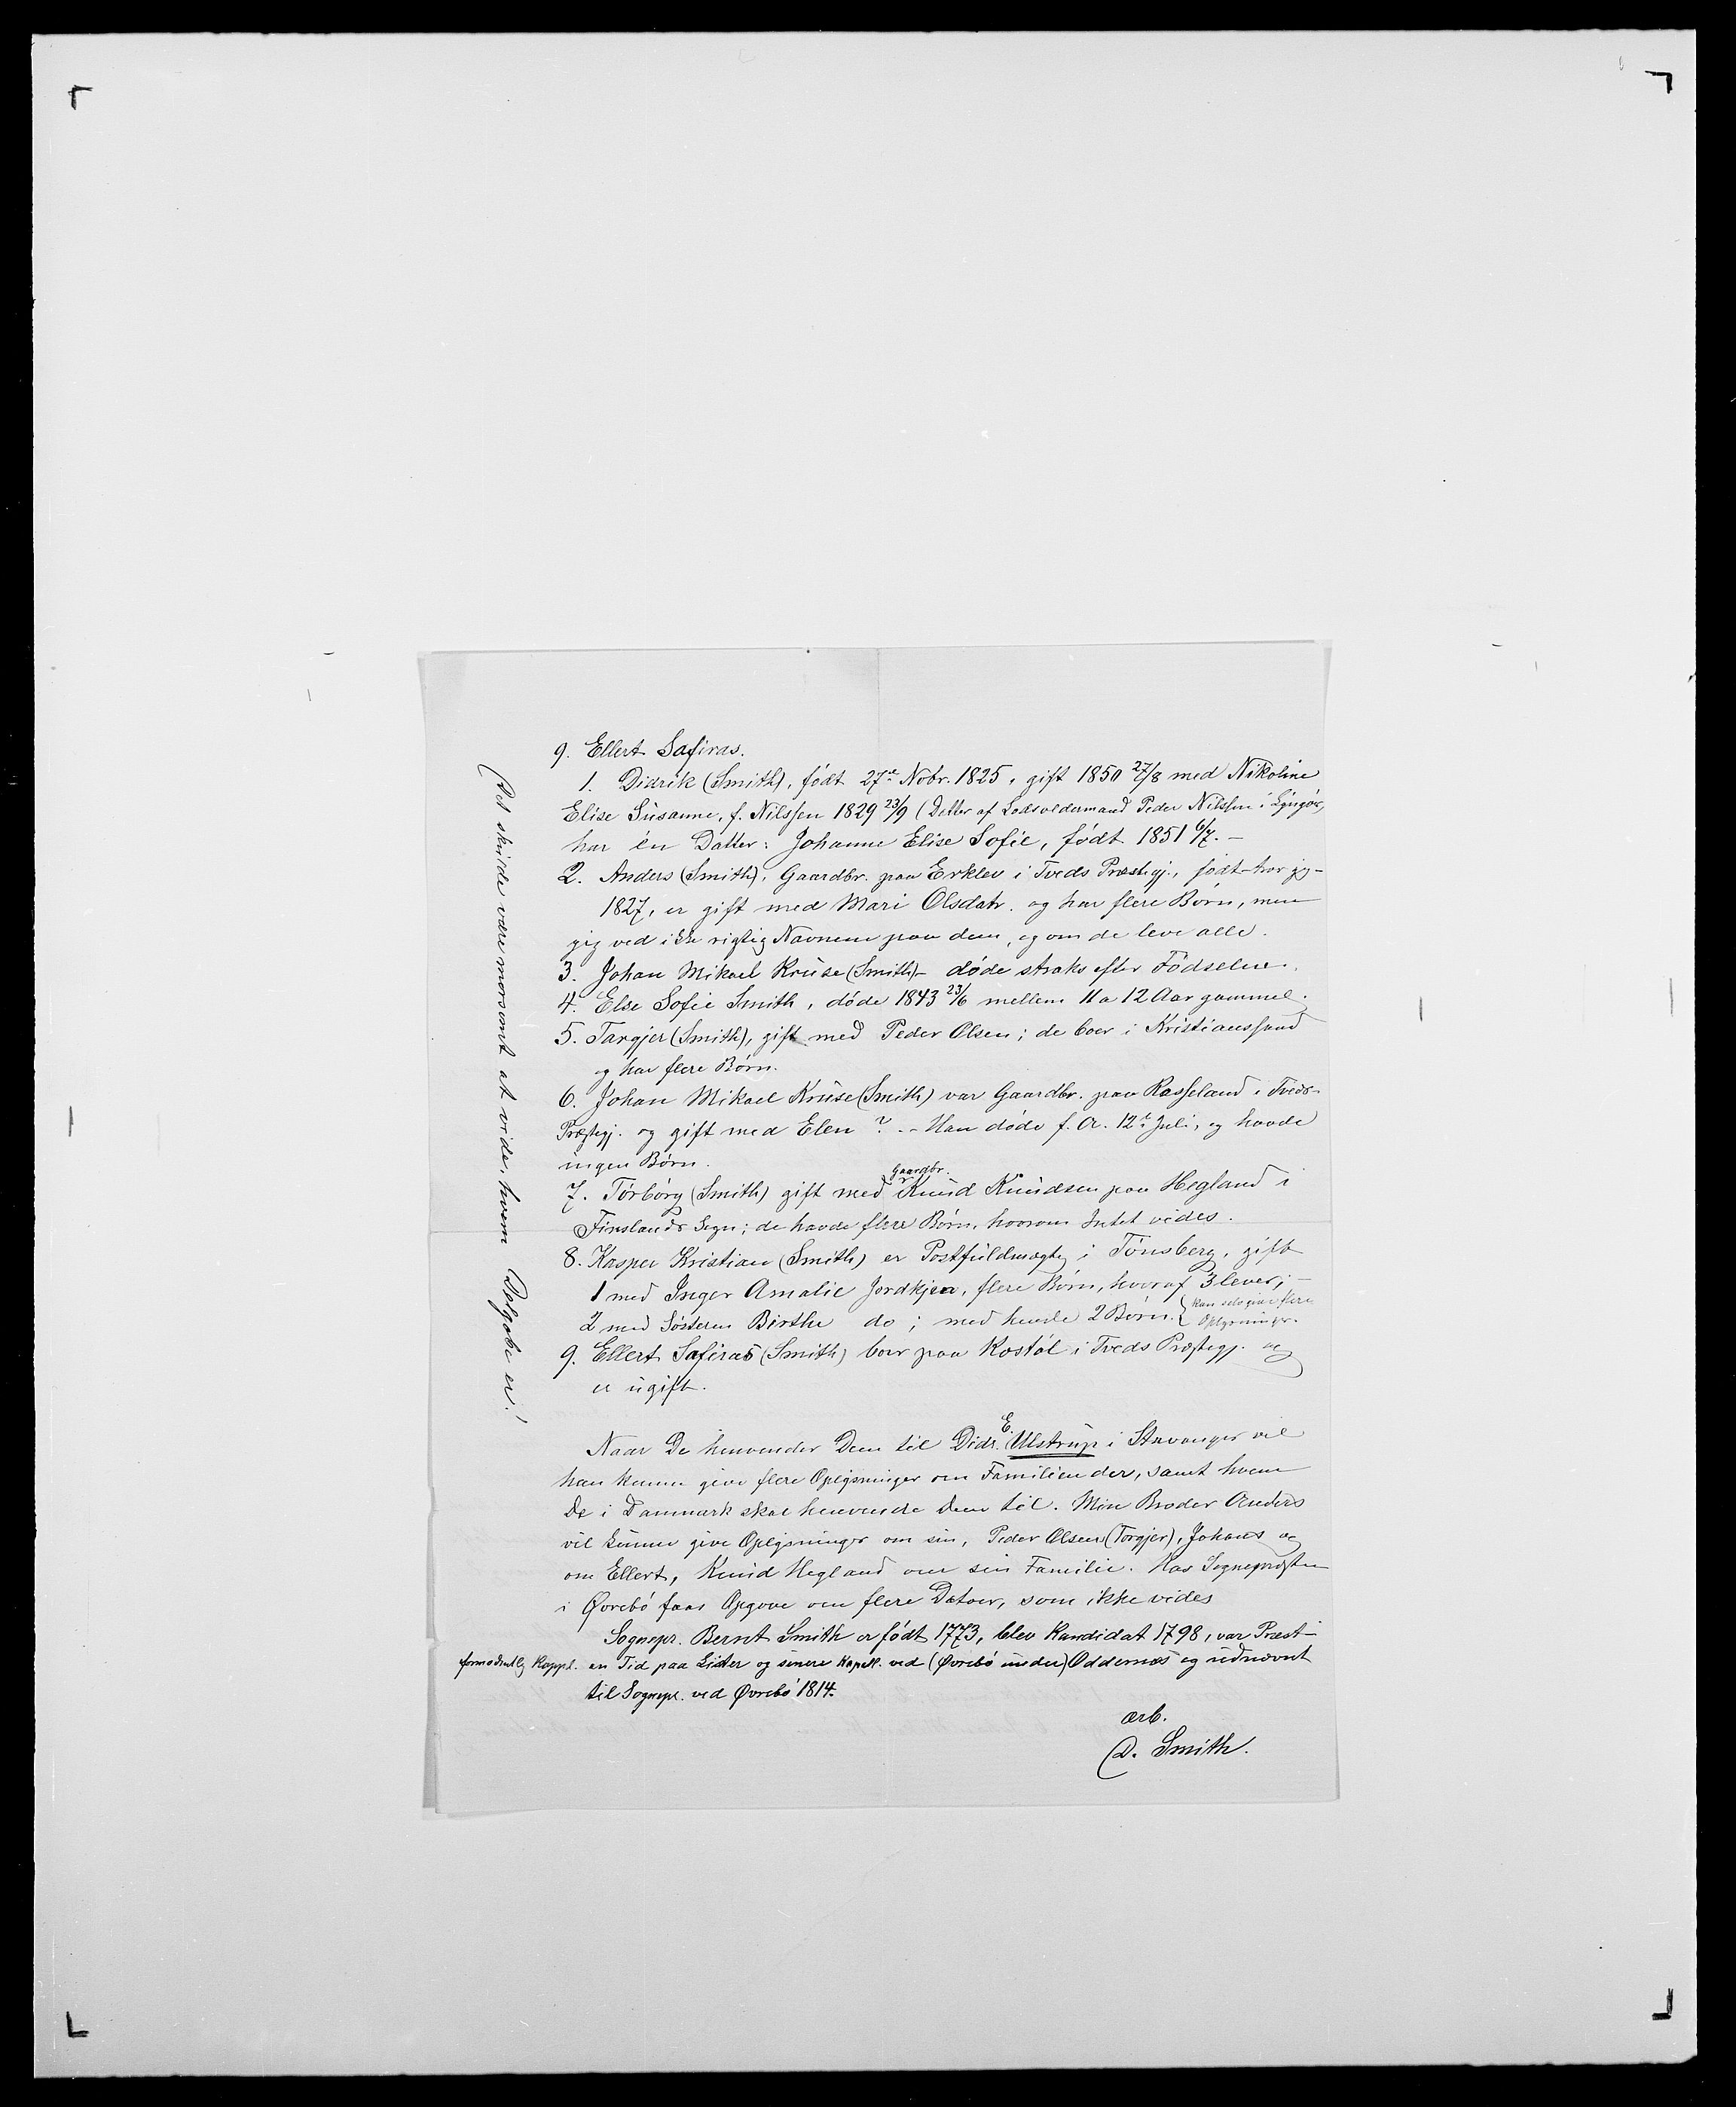 9. Ellert Safiras.
1. Didrik (Smith), født 27de Novbr. 1825, gift 1850 27/8 med Nikoline
Elise Susanne, f. Nilssen 1829 23/9 (Datter af Lodsoldermand Peder Nilssen i Lyngør,
har én Datter: Johanne Elise Sofie, født 1851 6/7. –
2. Anders (Smith), Gaardbr. paa Erklev i Tveds Præstegj., født – tror jeg –
1827, er gift med Mari Olsdatr. og har flere Børn, men
jeg ved ikke rigtig Navnene paa dem, og om de leve alle.
3. Johan Mikael Kruse (Smith) – døde straks efter Fødselen.
4. Else Sofie Smith, døde 1843 23/6 mellem 11 a 12 Aar gammel.
5. Targjer (Smith), gift med Peder Olsen; de boer i Kristianssand
og har flere Børn.
6. Johan Mikael Kruse (Smith) var Gaardbr. paa Rosseland i Tveds
Præstegj. og gift med Elen ? – Han døde f. A. 12te Juli, og havde
ingen Børn.
7. Torborg (Smith) gift med Gaardbr. Knud Knudsen paa Hegland i
Finslands Sogn; de havde flere Børn, hvorom Intet vides.
8. Kasper Kristian (Smith) er Postfuldmægtig i Tønsberg, gift
1 med Inger Amalie Jordkjen, flere Børn, hvoraf 3 lever; –
2 med Søsteren Birthe do; med hende 2 Børn. {Kan selv give flere
Oplysninger.
9. Ellert Safiras (Smith) boer paa Kostøl i Tveds Præstegj. og
er ugift.
Naar De henvender Dem til Didr. E. Ulstrup i Stavanger vil
han kunne give flere Oplysninger om Familien der, samt hvem
De i Danmark skal henvende Dem til. Min Broder Anders
vil kunne give Oplysninger om sin, Peder Olsens (Torgjer), Johans og
om Ellert, Knud Hegland om sin Familie. Hos Sognepræsten
i Øvrebø faas Opgave om flere Datoer, som ikke vides
Sognepr. Bernt Smith er født 1773, blev Kandidat 1798, var Præst –
formodentlig Kappel. en Tid paa Lister og senere Kapell. ved (Øvrebø under) Oddernæs og udnævnt
til Sognepr. ved Øvrebø 1814.
ærb.
D. Smith.
(Det skulde være morsomt at vide, hvem Dolgobe er!